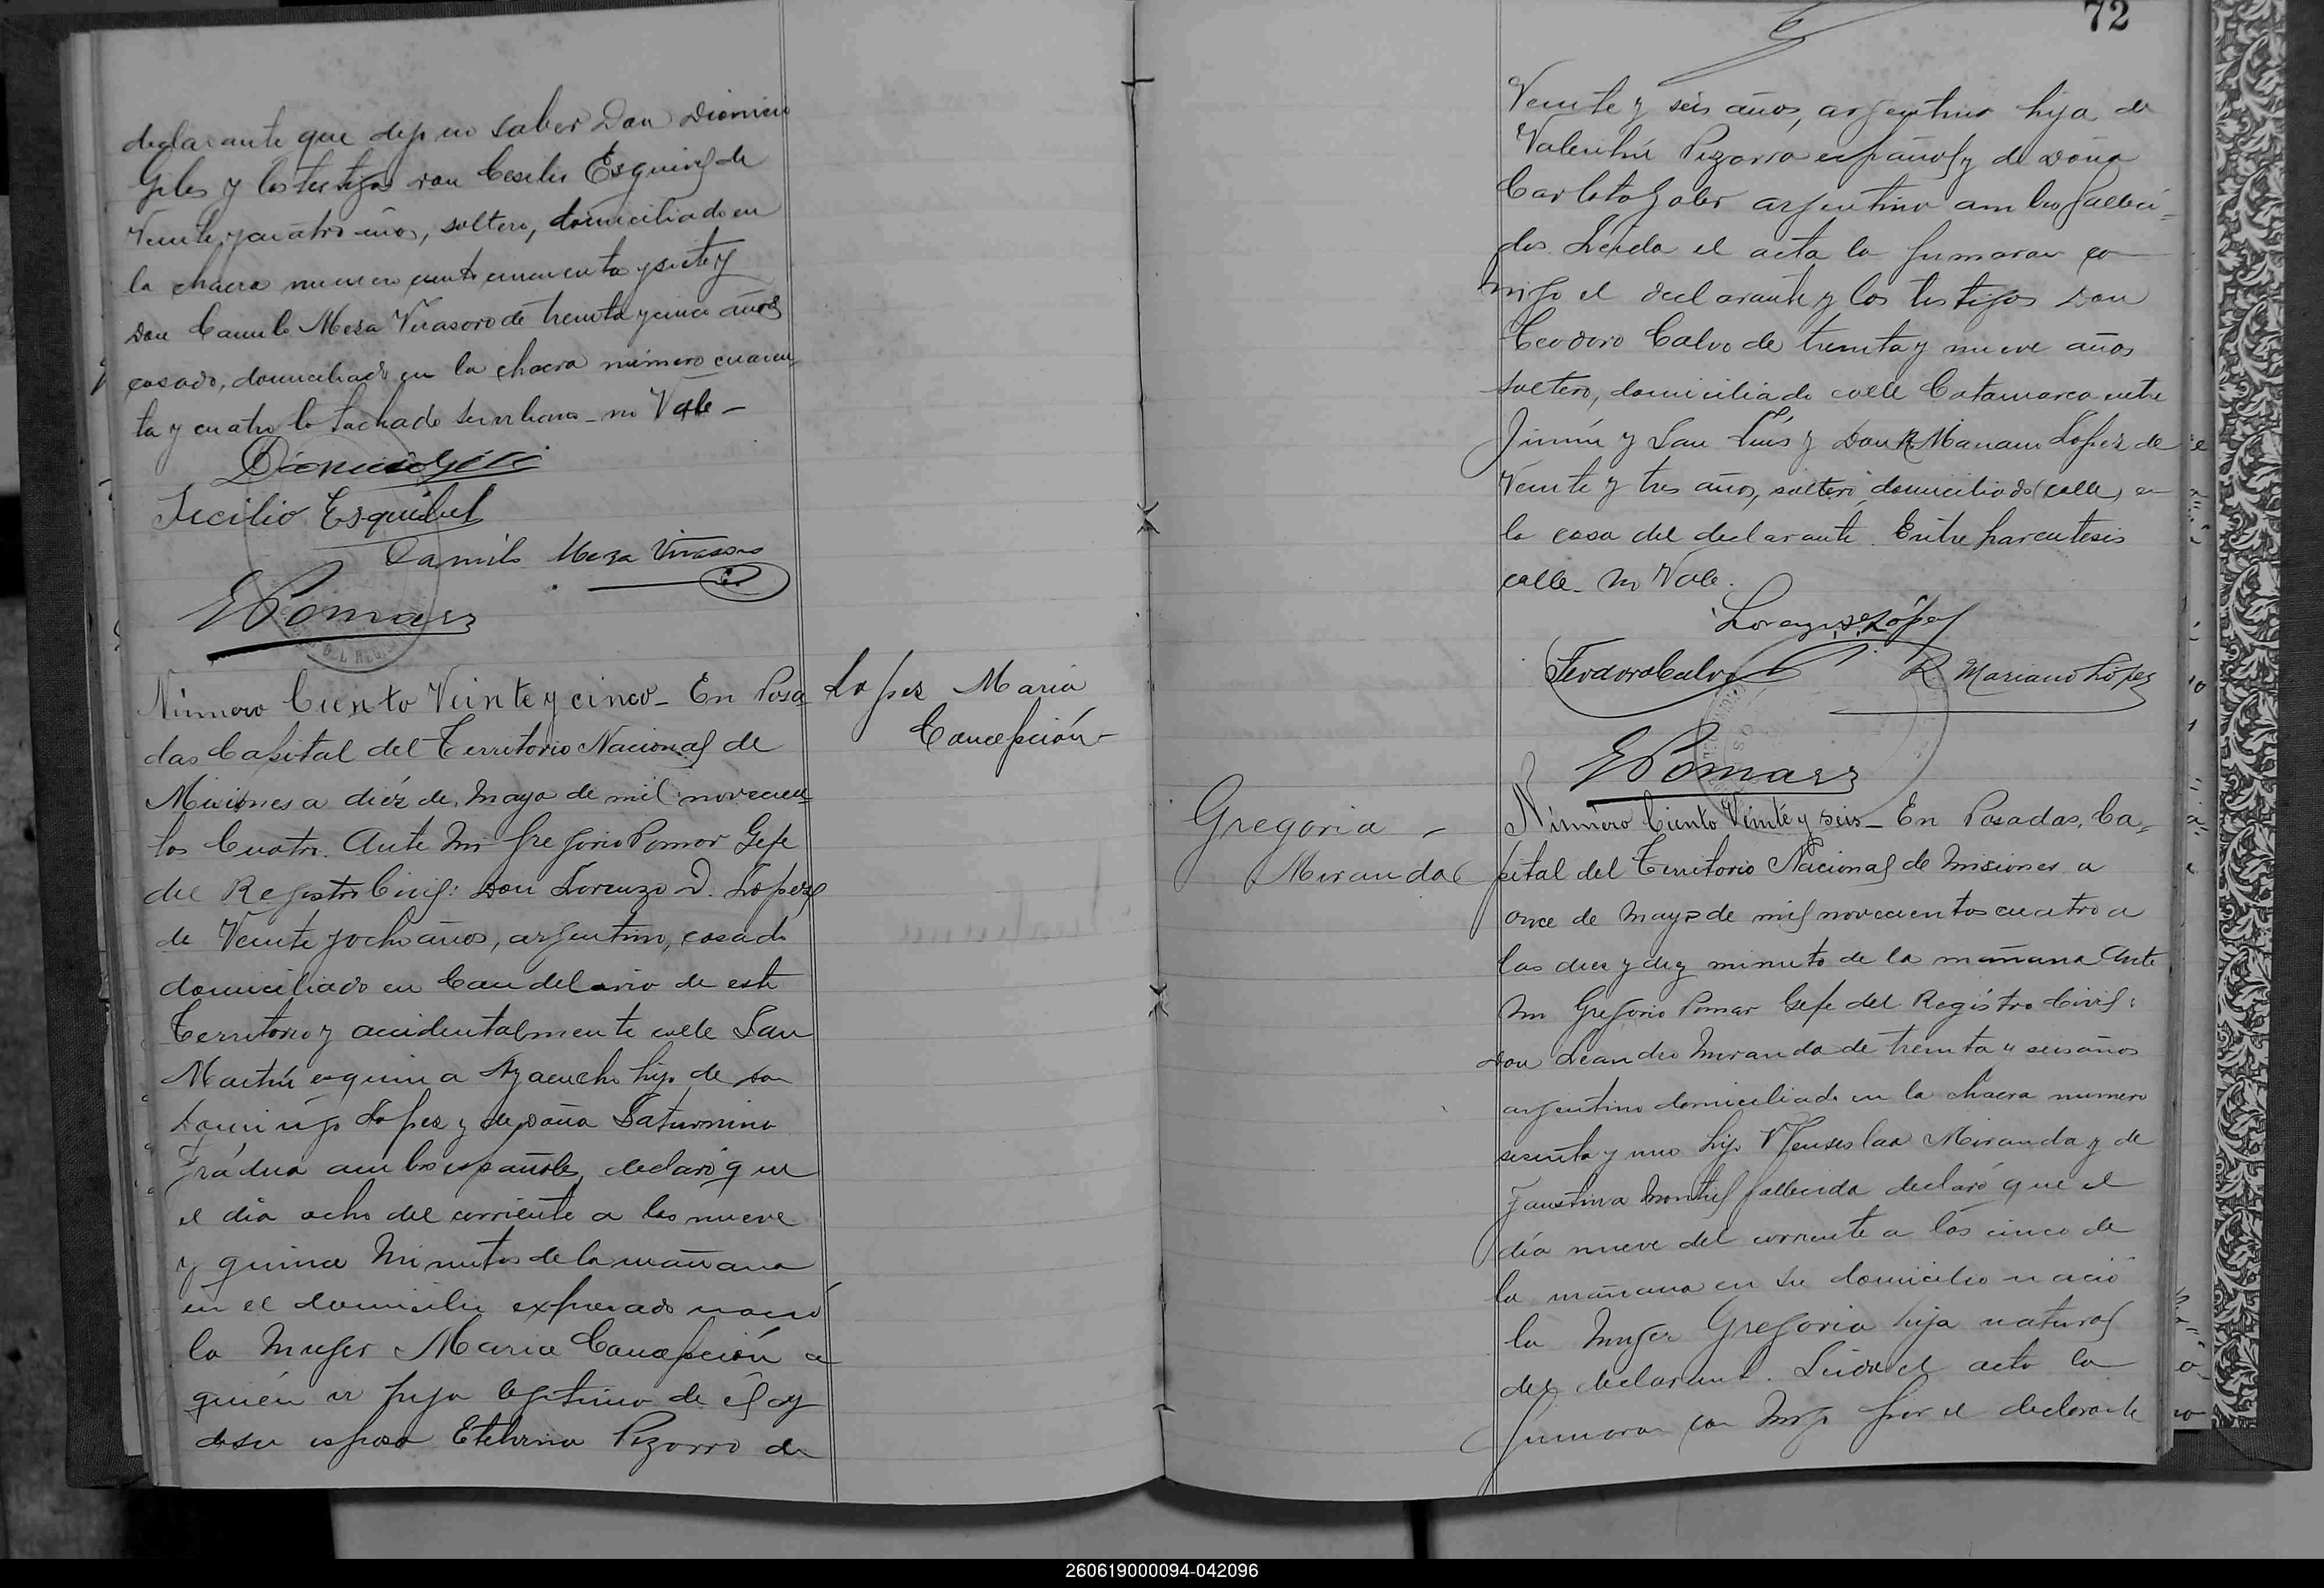 declarante que dijo no saber Don Dionicio
Giles y los testigos don Cecilio Esquivel de
Veinte y cuatro años, soltero, domiciliado en
la chacra numero ciento cincuenta y siete y
Don Camilo Meza Virasoro de treinta y cinco años
casado, domiciliado en la chacra número cuaren-
ta y cuatro lo tachado no Vale-
Secilio Esquibel
Camilo Meza Virasoro
GPomar
Número Ciento Veinte y cinco- En Posa
das Capital del Territorio Nacional de
Misiones a diéz de Mayo de mil novecien-
tos Cuatro. Ante Mi Gregorio Pomar Gefe
del Registro Civil: Don Lorenzo D. Lopez
de Veinte y ocho años, argentino, casado
domiciliado en Candelaria de este
Territorio y accidentalmente calle San
Martín esquina Ayacucho hijo de don
Domingo Lopez y de doña Saturnina
ambos españoles, declaró que
el día ocho del corriente a las nueve
y quince Minutos de la mañana
en el domicilio expresado nació
la Muger Maria Concepción a
quién es hija legitima de él y
de su esposa Etelvina Pizarro de
Lopez Maria
Concepción-
72
Veinte y seis años, argentina hija de
Valentín Pizarro español y de doña
Carlota argentina ambos falleci-
dos. Leida el acta la firmaron co
migo el declarante y los testigos Don
Teodoro Calvo de treinta y nueve años
soltero, domiciliado calle Catamarca entre
Junín y San Luis y Don R. Mariano Lopez de
Veinte y tres años, soltero domiciliado (calle) en
la casa del declarante. Entre parentesis
calle- no Vale.
Lorenzo D. López
Teodoro Calvo
R. Mariano López
GPomar
Gregoria -
Miranda
Número Ciento Veinte y seis- En Posadas, Ca-
pital del Territorio Nacional de Misiones a
once de Mayo de mil novecientos cuatro a
las diez y diez minuto de la mañana Ante
Mi Gregorio Pomar Gefe del Registro Civil:
Don Leandro Miranda de treinta y seis años
argentino domiciliado en la chacra numero
sesenta y uno hijo Wenseslaa Miranda y de
Faustina Montiel fallecida declaró que el
día nueve del corriente a las cinco de
la mañana en su domicilio nació
la Muger Gregoria hija natural
del declarante. Leida el acta la
firmaron con Migo por el declarante
260619000094-042096